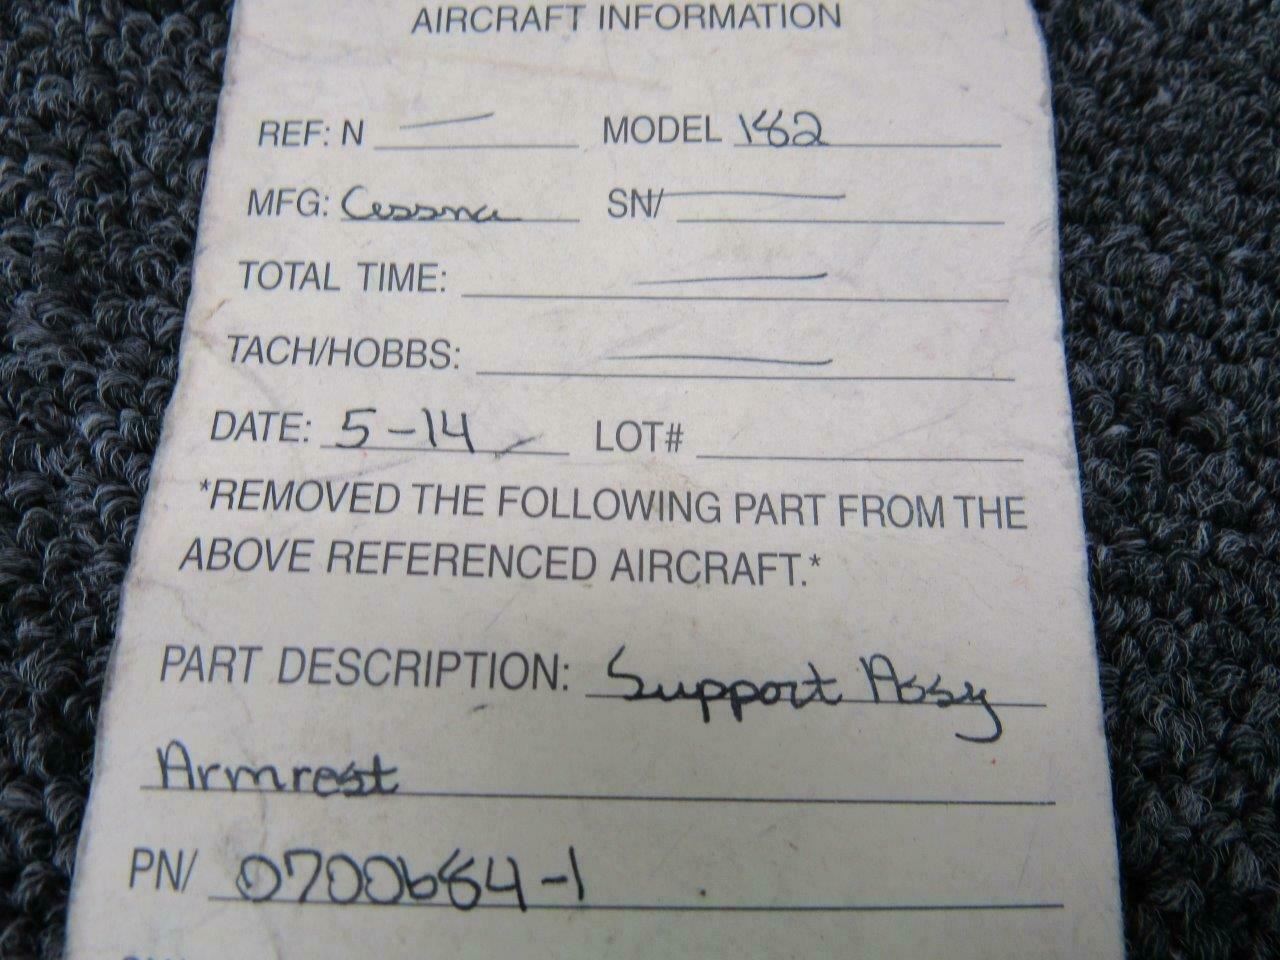 AIRCRAFT INFORMATION
REF: N — MODEL 182
MFG: Cessna SN/ —
TOTAL TIME: —
TACH/HOBBS: —
DATE: 5-14 LOT#
*REMOVED THE FOLLOWING PART FROM THE
ABOVE REFERENCED AIRCRAFT.*
PART DESCRIPTION: Support Assy
Armrest
PN/ 0700684-1